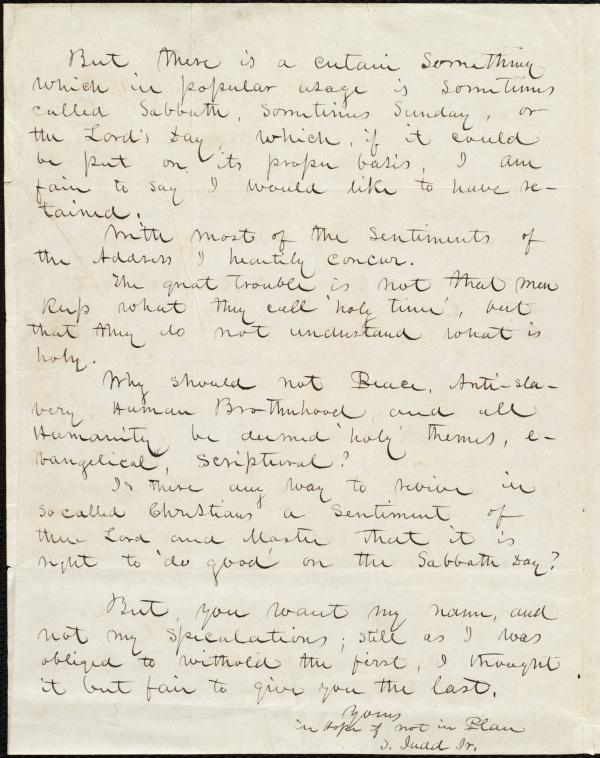 But there is a certain Something
which in popular usage is sometimes
called Sabbath, Sometimes Sunday, or
the Lord's Day, which, if it could
be put on its proper basis, I am
fain to say I would like to have re-
tained.
With most of the sentiments of
the Address I heartily concur.
The great trouble is not that men
keep what they call 'holy time', but
that they do not understand what is
holy.
Why should not Peace, Anti-sla-
very, Human Brotherhood, and all
Humanity, be deemed 'holy' themes, e-
vangelical, Scriptural?
Is there any way to revive in
so called Christians a sentiment of
their Lord and Master that it is
right to 'do good' on the Sabbath Day?
But, you want my name, and
not my speculations; still as I was
obliged to withold the first, I thought
it but fair to give you the last.
Yours
in Hope if not in Plan
S. Judd Jr.